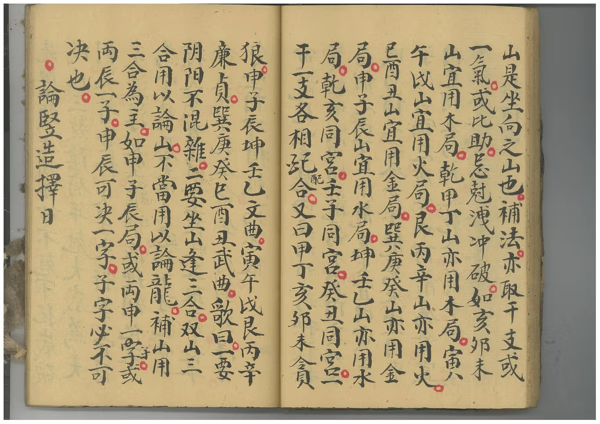 山是坐向之山也補法亦取干支或
一氣或比助忌尅洩冲破如亥卯未
山宜用木局乾甲丁山亦用木局寅
午戌山宜用火局艮丙辛山亦用火
巳酉丑山宜用金局巽庚癸山亦用金
局申子辰山宜用水局坤壬乙山亦用水
局乾亥同宮壬子同宮癸丑同宮一
干一支各相配合又曰甲丁亥卯未貪
狼申子辰坤壬乙文曲寅午戌艮丙辛
廉貞巽庚癸巳酉丑武曲歌曰一要
阴阳不混雜二要坐山逢三合双山三
合用以論山不當用以論龍補山用
三合為王如申子辰局或丙申一字或
兩辰一子申辰可决一字子字必不可
决也
論竪造擇日